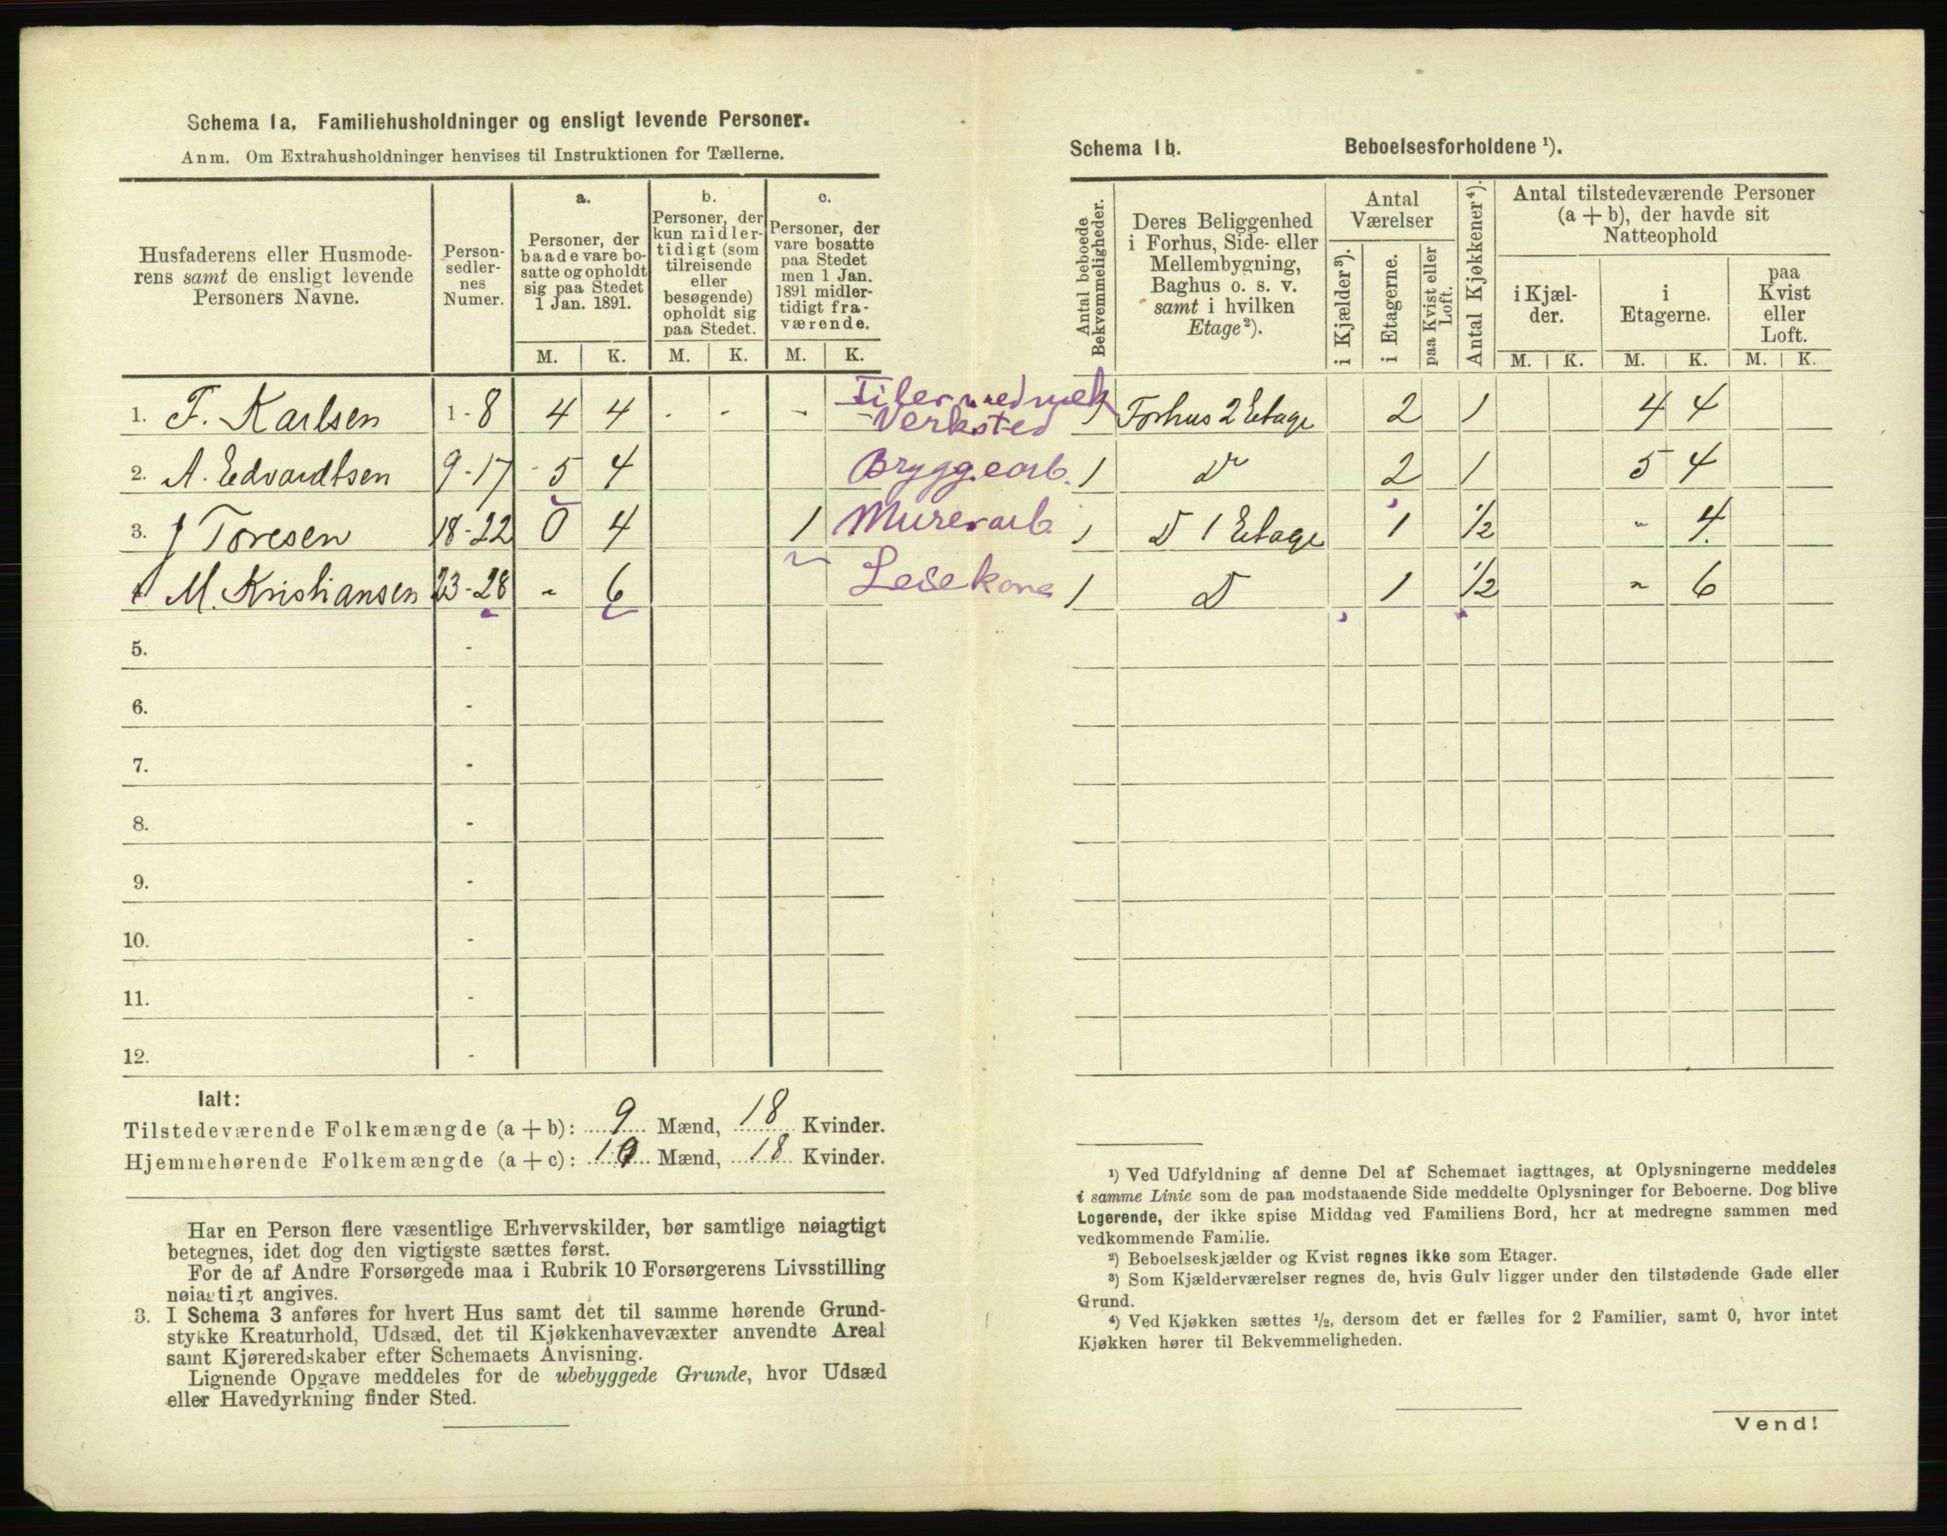 Schema 1a. Familiehusholdninger og ensligt levende Personer.
Anm. Om Extrahusholdninger henvises til Instruktionen for Tællerne.
Husfaderens eller Husmode-
rens samt de ensligt levende
Personers Navne.
Person-
sedler-
nes
Numer.
a.
Personer, der
baade vare bo-
satte og opholdt
sig paa Stedet
1 Jan. 1891.
b.
Personer, der
kun midler-
tidigt (som
tilreisende
eller
besøgende)
opholdt sig
paa Stedet.
c.
Personer, der
vare bosatte
paa Stedet
men 1 Jan.
1891 midler-
tidigt fra-
værende.
M. K. M. K. M. K.
1. F. Karlsen 1 - 8 4 4 - - -
Filer ved mek
Verksted
2. A. Edvardtsen 9 - 17 5 4 Bryggearb.
3. J Toresen 18 - 22 0 4 1 Murerarb.
M. Kristiansen 23 - 28 " 6
5. -
6. -
7. -
8. -
9. -
10. -
11. -
12. -
Ialt:
Tilstedeværende Folkemængde (a + b): 9 Mænd, 18 Kvinder.
Hjemmehørende Folkemængde (a + c): 10 Mænd, 18 Kvinder.
Har en Person flere væsentlige Erhvervskilder, bør samtlige nøiagtigt
betegnes, idet dog den vigtigste sættes først.
For de af Andre Forsørgede maa i Rubrik 10 Forsørgerens Livsstilling
nøiagtigt angives.
3. I Schema 3 anføres for hvert Hus samt det til samme hørende Grund-
stykke Kreaturhold, Udsæd, det til Kjøkkenhavevæxter anvendte Areal
samt Kjøreredskaber efter Schemaets Anvisning.
Lignende Opgave meddeles for de ubebyggede Grunde, hvor Udsæd
eller Havedyrkning finder Sted.
Schema 1b. Beboelsesforholdene ¹).
Antal beboede
Bekvemmeligheder.
Deres Beliggenhed
i Forhus, Side- eller
Mellembygning,
Baghus o. s. v.
samt i hvilken
Etage ²).
Antal
Værelser
i Kjælder ³).
i Etagerne.
paa Kvist eller
Loft.
Antal Kjøkkener ⁴).
Antal tilstedeværende Personer
(a + b), der havde sit
Natteophold
i Kjæl-
der.
i
Etagerne.
paa
Kvist
eller
Loft.
M. K. M. K. M. K.
1 Forhus 2 Etage 2 1 4 4
1 D 2 1 5 4
1 D 1 Etage 1 ½ " 4
1 D 1 ½ " 6
¹) Ved Udfyldning af denne Del af Schemaet iagttages, at Oplysningerne meddeles
i samme Linie som de paa modstaaende Side meddelte Oplysninger for Beboerne. Dog blive
Logerende, der ikke spise Middag ved Familiens Bord, her at medregne sammen med
vedkommende Familie.
²) Beboelseskjælder og Kvist regnes ikke som Etager.
³) Som Kjælderværelser regnes de, hvis Gulv ligger under den tilstødende Gade eller
Grund.
⁴) Ved Kjøkken sættes ½, dersom det er fælles for 2 Familier, samt 0, hvor intet
Kjøkken hører til Bekvemmeligheden.
Vend!